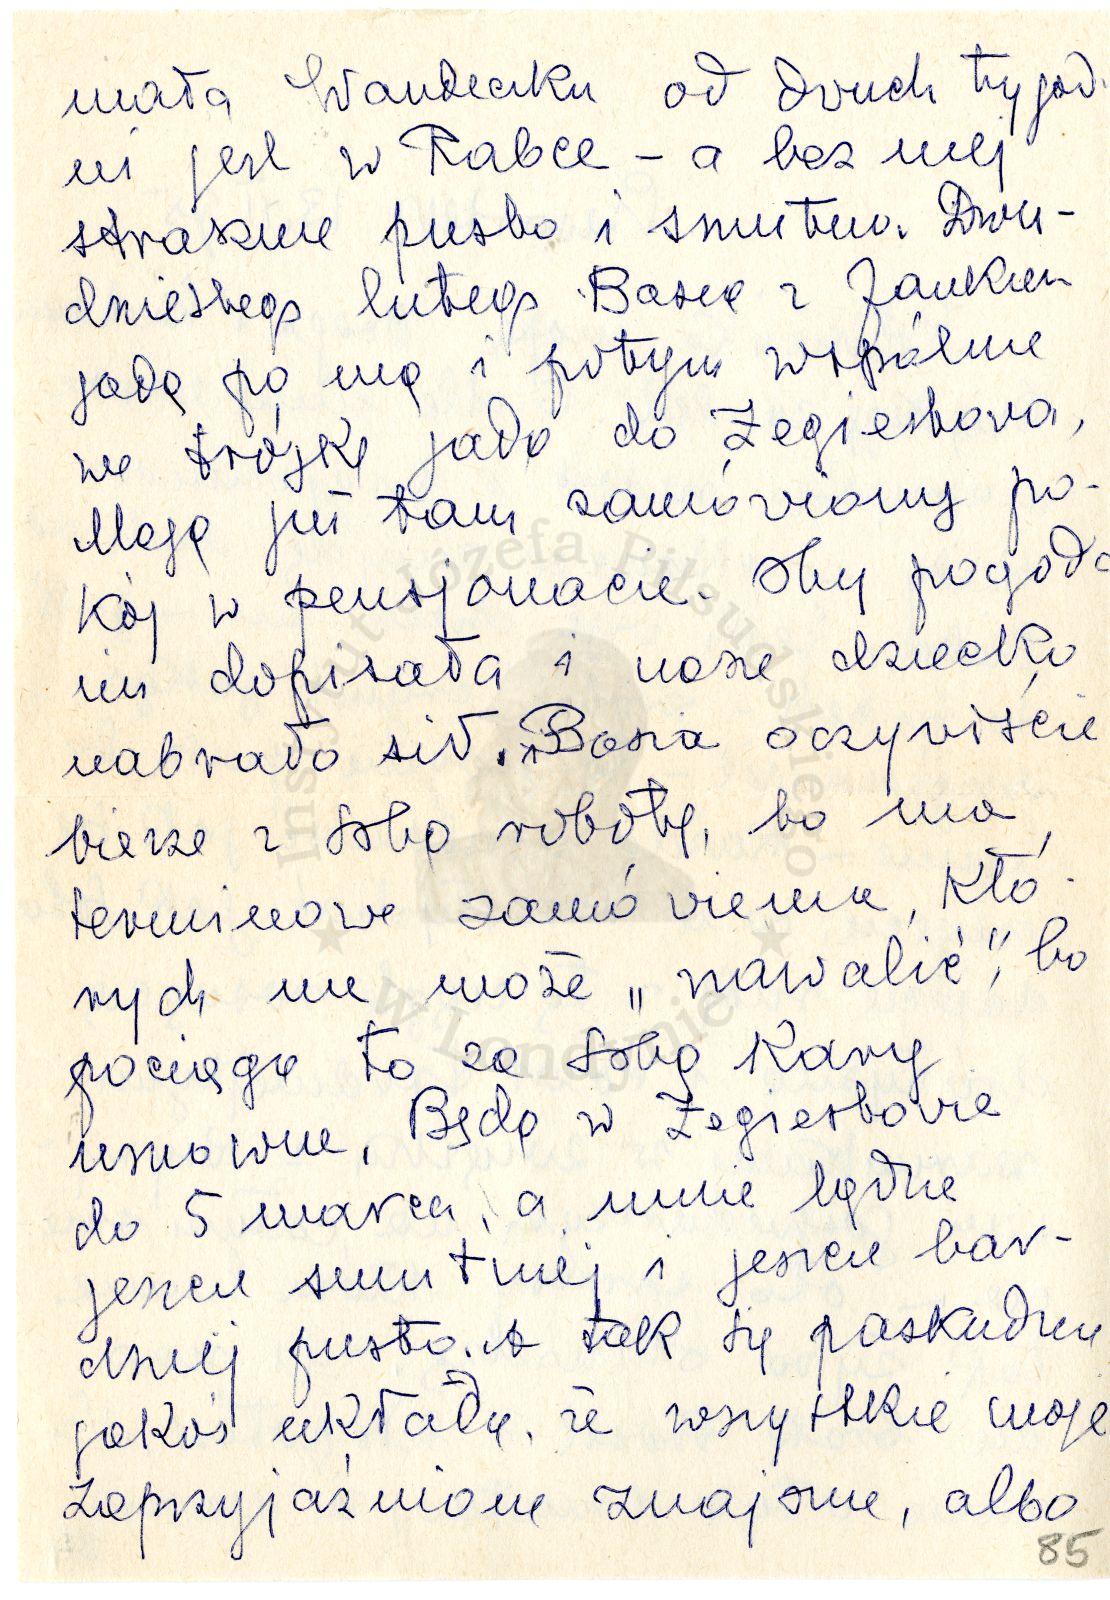 mała Wandeczka od dwuch tygod-
ni jest w Rabce – a bez niej
strasznie pusto i smutno. Dwu-
dziestego lutego Basia z Jankiem
jadą po nią i potym wspólnie
we trójkę jadą do Żegiestowa,
Mają już tam zamówiony po-
kój w pensjonacie. Oby pogoda
im dopisała i nasze dziecko
nabrało sił. Basia oczywiście
bierze z sobą robotę, bo ma
terminowe zamówienia, któ-
rych nie może „nawalić", bo
pociąga to za sobą kary
umowne. Będą w Żegiestowie
do 5 marca, a mnie będzie
jeszcze smutniej i jeszcze bar-
dziej pusto. A tak się paskudnie
jakoś układa, że wszystkie moje
zaprzyjaźnione znajome, albo
85
Instytut Józefa Piłsudskiego
w Londynie